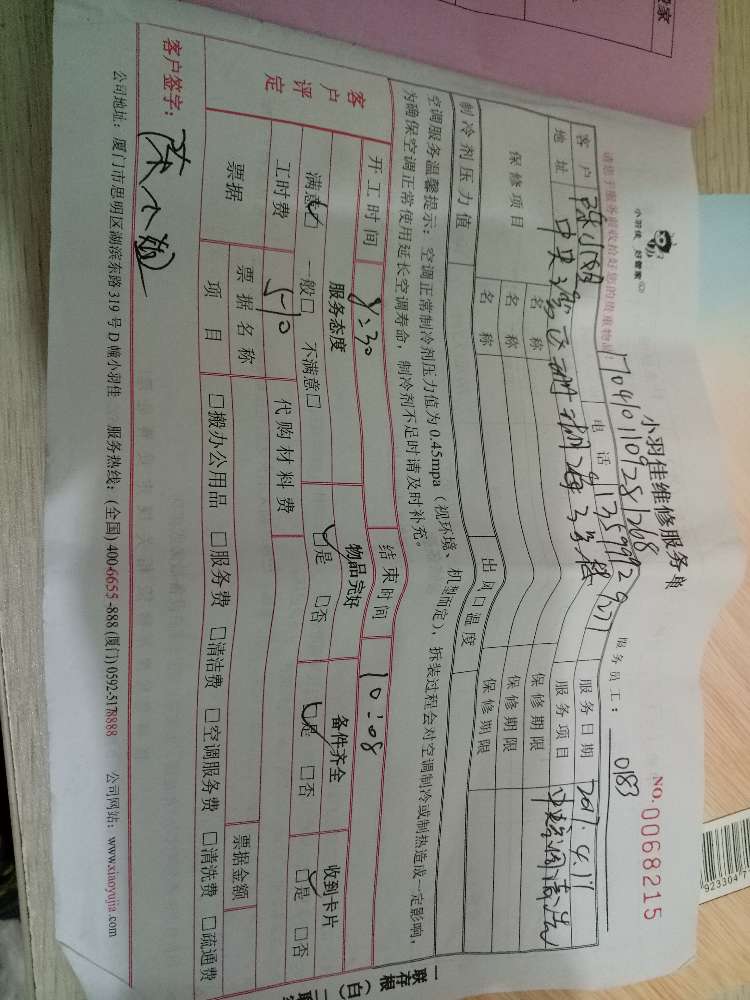 小羽佳 好管家
小羽佳维修服务单
NO.0068215
170401109281268
服务员工： 0183
请您于服务前收拾好您的贵重物品！
客户 电话 服务日期 2017.4.11
地址 服务项目
保修项目 名称 保修期限
名称 保修期限
名称 保修期限
制冷剂压力值 出风口温度
空调服务温馨提示：空调正常制冷剂压力值为0.45mpa（视环境、机型而定），拆装过程会对空调制冷或制热造成一定影响，
为确保空调正常使用延长空调寿命，制冷剂不足时请及时补充。
开工时间 8:30 结束时间 10:08
客户评定 服务态度 物品完好 备件齐全 收到卡片
满意☑ 一般□ 不满意□ ☑是 □否 ☑是 □否 ☑是 □否
工时费 510 代购材料费
票据 票据名称 票据金额
项目 □搬办公用品 □服务费 □清洁费 □空调服务费 □清洗费 □疏通费
客户签字：
公司地址：厦门市思明区湖滨东路319号D幢小羽佳 服务热线：(全国) 400-6655-888 (厦门) 0592-5178888 公司网站：www.xiaoyujia.com
一联存根（白）二联
923304